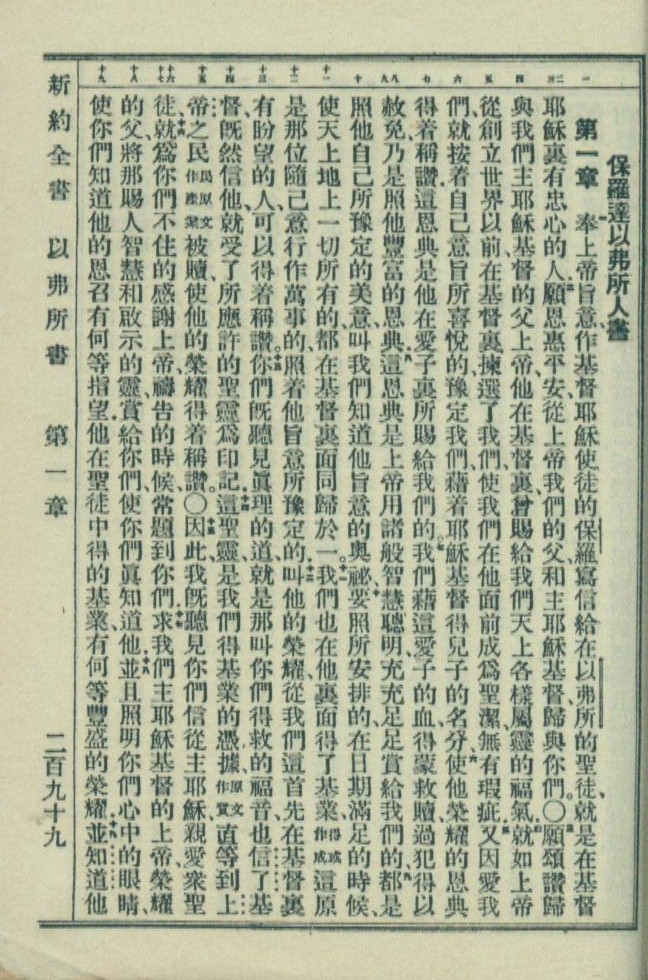 保羅達以弗所人書
第一章 奉上帝旨意、作基督耶穌使徒的保羅、寫信給在以弗所的聖徒、就是在基督
耶穌裏有忠心的人、願恩惠平安、從上帝我們的父、和主耶穌基督、歸與你們。〇願頌讚歸
與我們主耶穌基督的父上帝、他在基督裏、曾賜給我們天上各樣屬靈的福氣、就如上帝
從創立世界以前、在基督裏揀選了我們、使我們在他面前成爲聖潔、無有瑕疵、又因愛我
們、就按着自己意旨所喜悅的、豫定我們、藉着耶穌基督得兒子的名分、使他榮耀的恩典
得着稱讚、這恩典是他在愛子裏所賜給我們的。我們藉這愛子的血、得蒙救贖、過犯得以
赦免、乃是照他豐富的恩典、這恩典是上帝用諸般智慧聰明、充充足足賞給我們的、都是
照他自己所豫定的美意、叫我們知道他旨意的奧祕、要照所安排的、在日期滿足的時候、
使天上地上一切所有的、都在基督裏面同歸於一。我們也在他裏面得了基業、得或作成這原
是那位隨己意行作萬事的、照着他旨意所豫定的、叫他的榮耀、從我們這首先在基督裏
有盼望的人、可以得着稱讚。你們既聽見眞理的道、就是那叫你們得救的福音、也信了基
督、既然信他、就受了所應許的聖靈爲印記、這聖靈、是我們得基業的憑據、原文作質直等到上
帝之民民原文作產業被贖、使他的榮耀得着稱讚。〇因此我既聽見你們信從主耶穌、親愛衆聖
徒、就爲你們不住的感謝上帝、禱告的時候、常題到你們、求我們主耶穌基督的上帝、榮耀
的父、將那賜人智慧和啟示的靈、賞給你們、使你們眞知道他、並且照明你們心中的眼睛、
使你們知道他的恩召有何等指望、他在聖徒中得的基業、有何等豐盛的榮耀、並知道他
新約全書 以弗所書 第一章 二百九十九